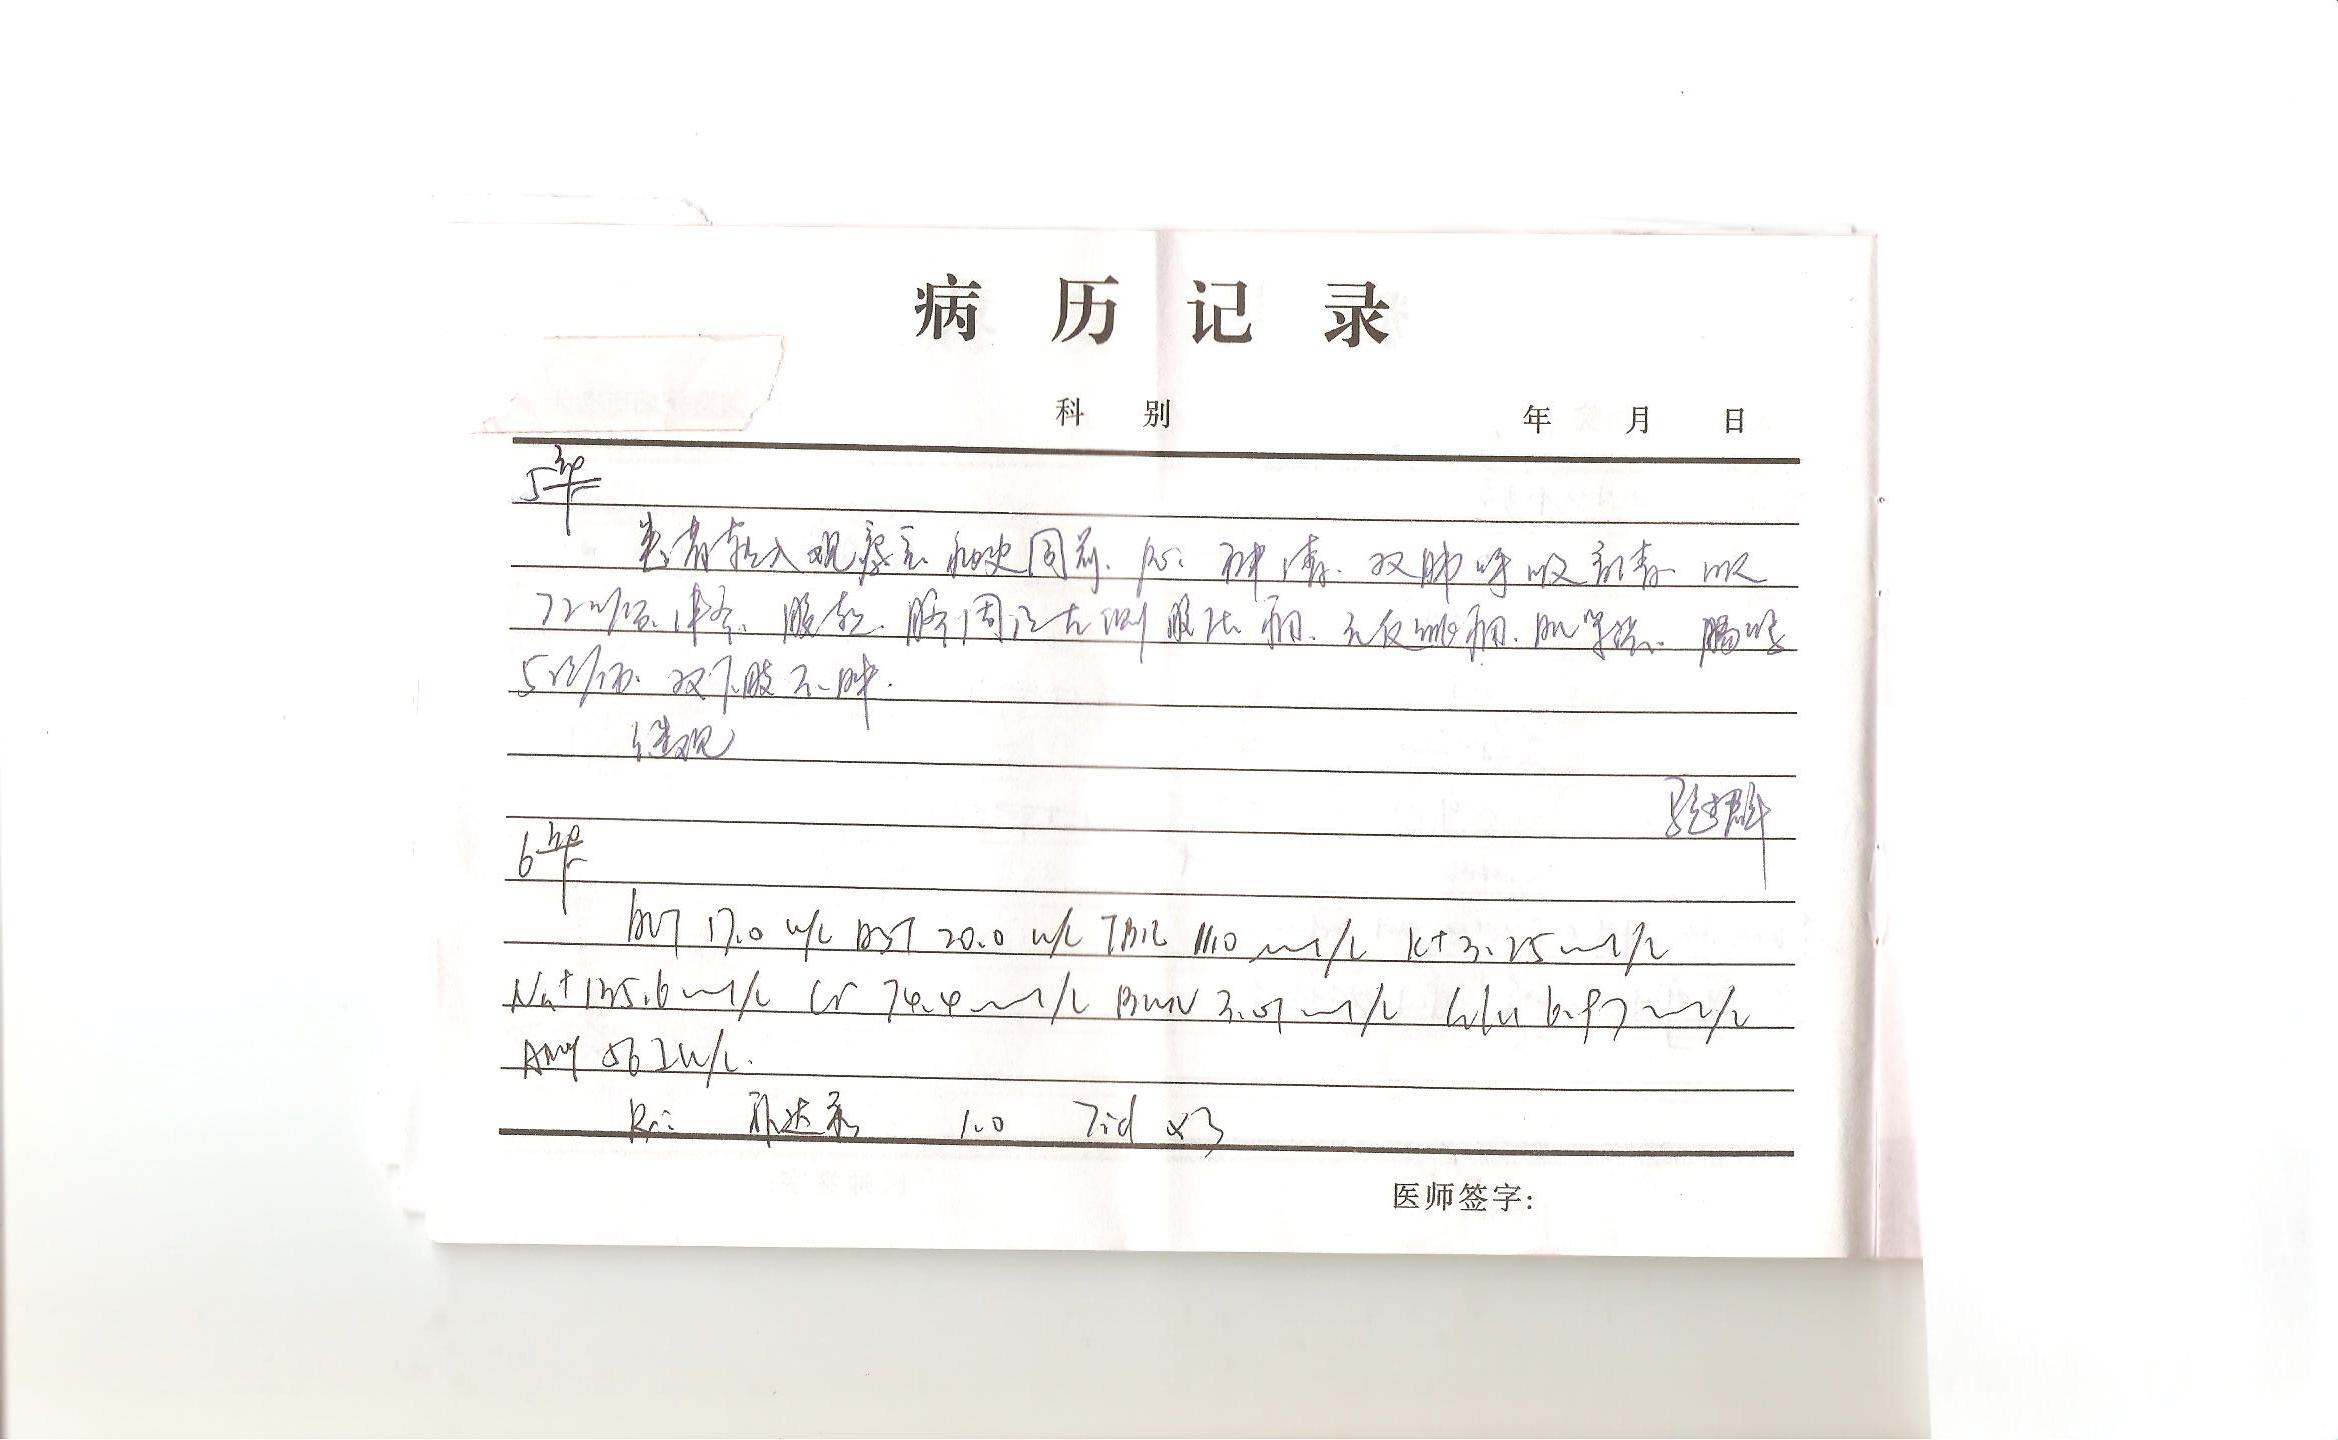 病历记录
科别 年 月 日
5
患者转入观察室. 病史同前. PE: 神清. 双肺呼吸音清. HR
72次/分. 律齐. 腹软. 脐周及左侧腹压痛. 无反跳痛. 肌紧张. 肠鸣
5次/分. 双下肢不肿.
继观
6
ALT 17.0 u/L AST 20.0 u/L TBIL 11.0 /L K+ 3.25 /L
Na+ 135.6 /L Cr 74.4 /L BUN 3.01 /L Glu 6.97 /L
AMY 56 IU/L.
R: 补达秀 1.0 Tid ×3
医师签字: